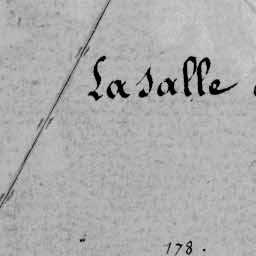 Lasalle
178.